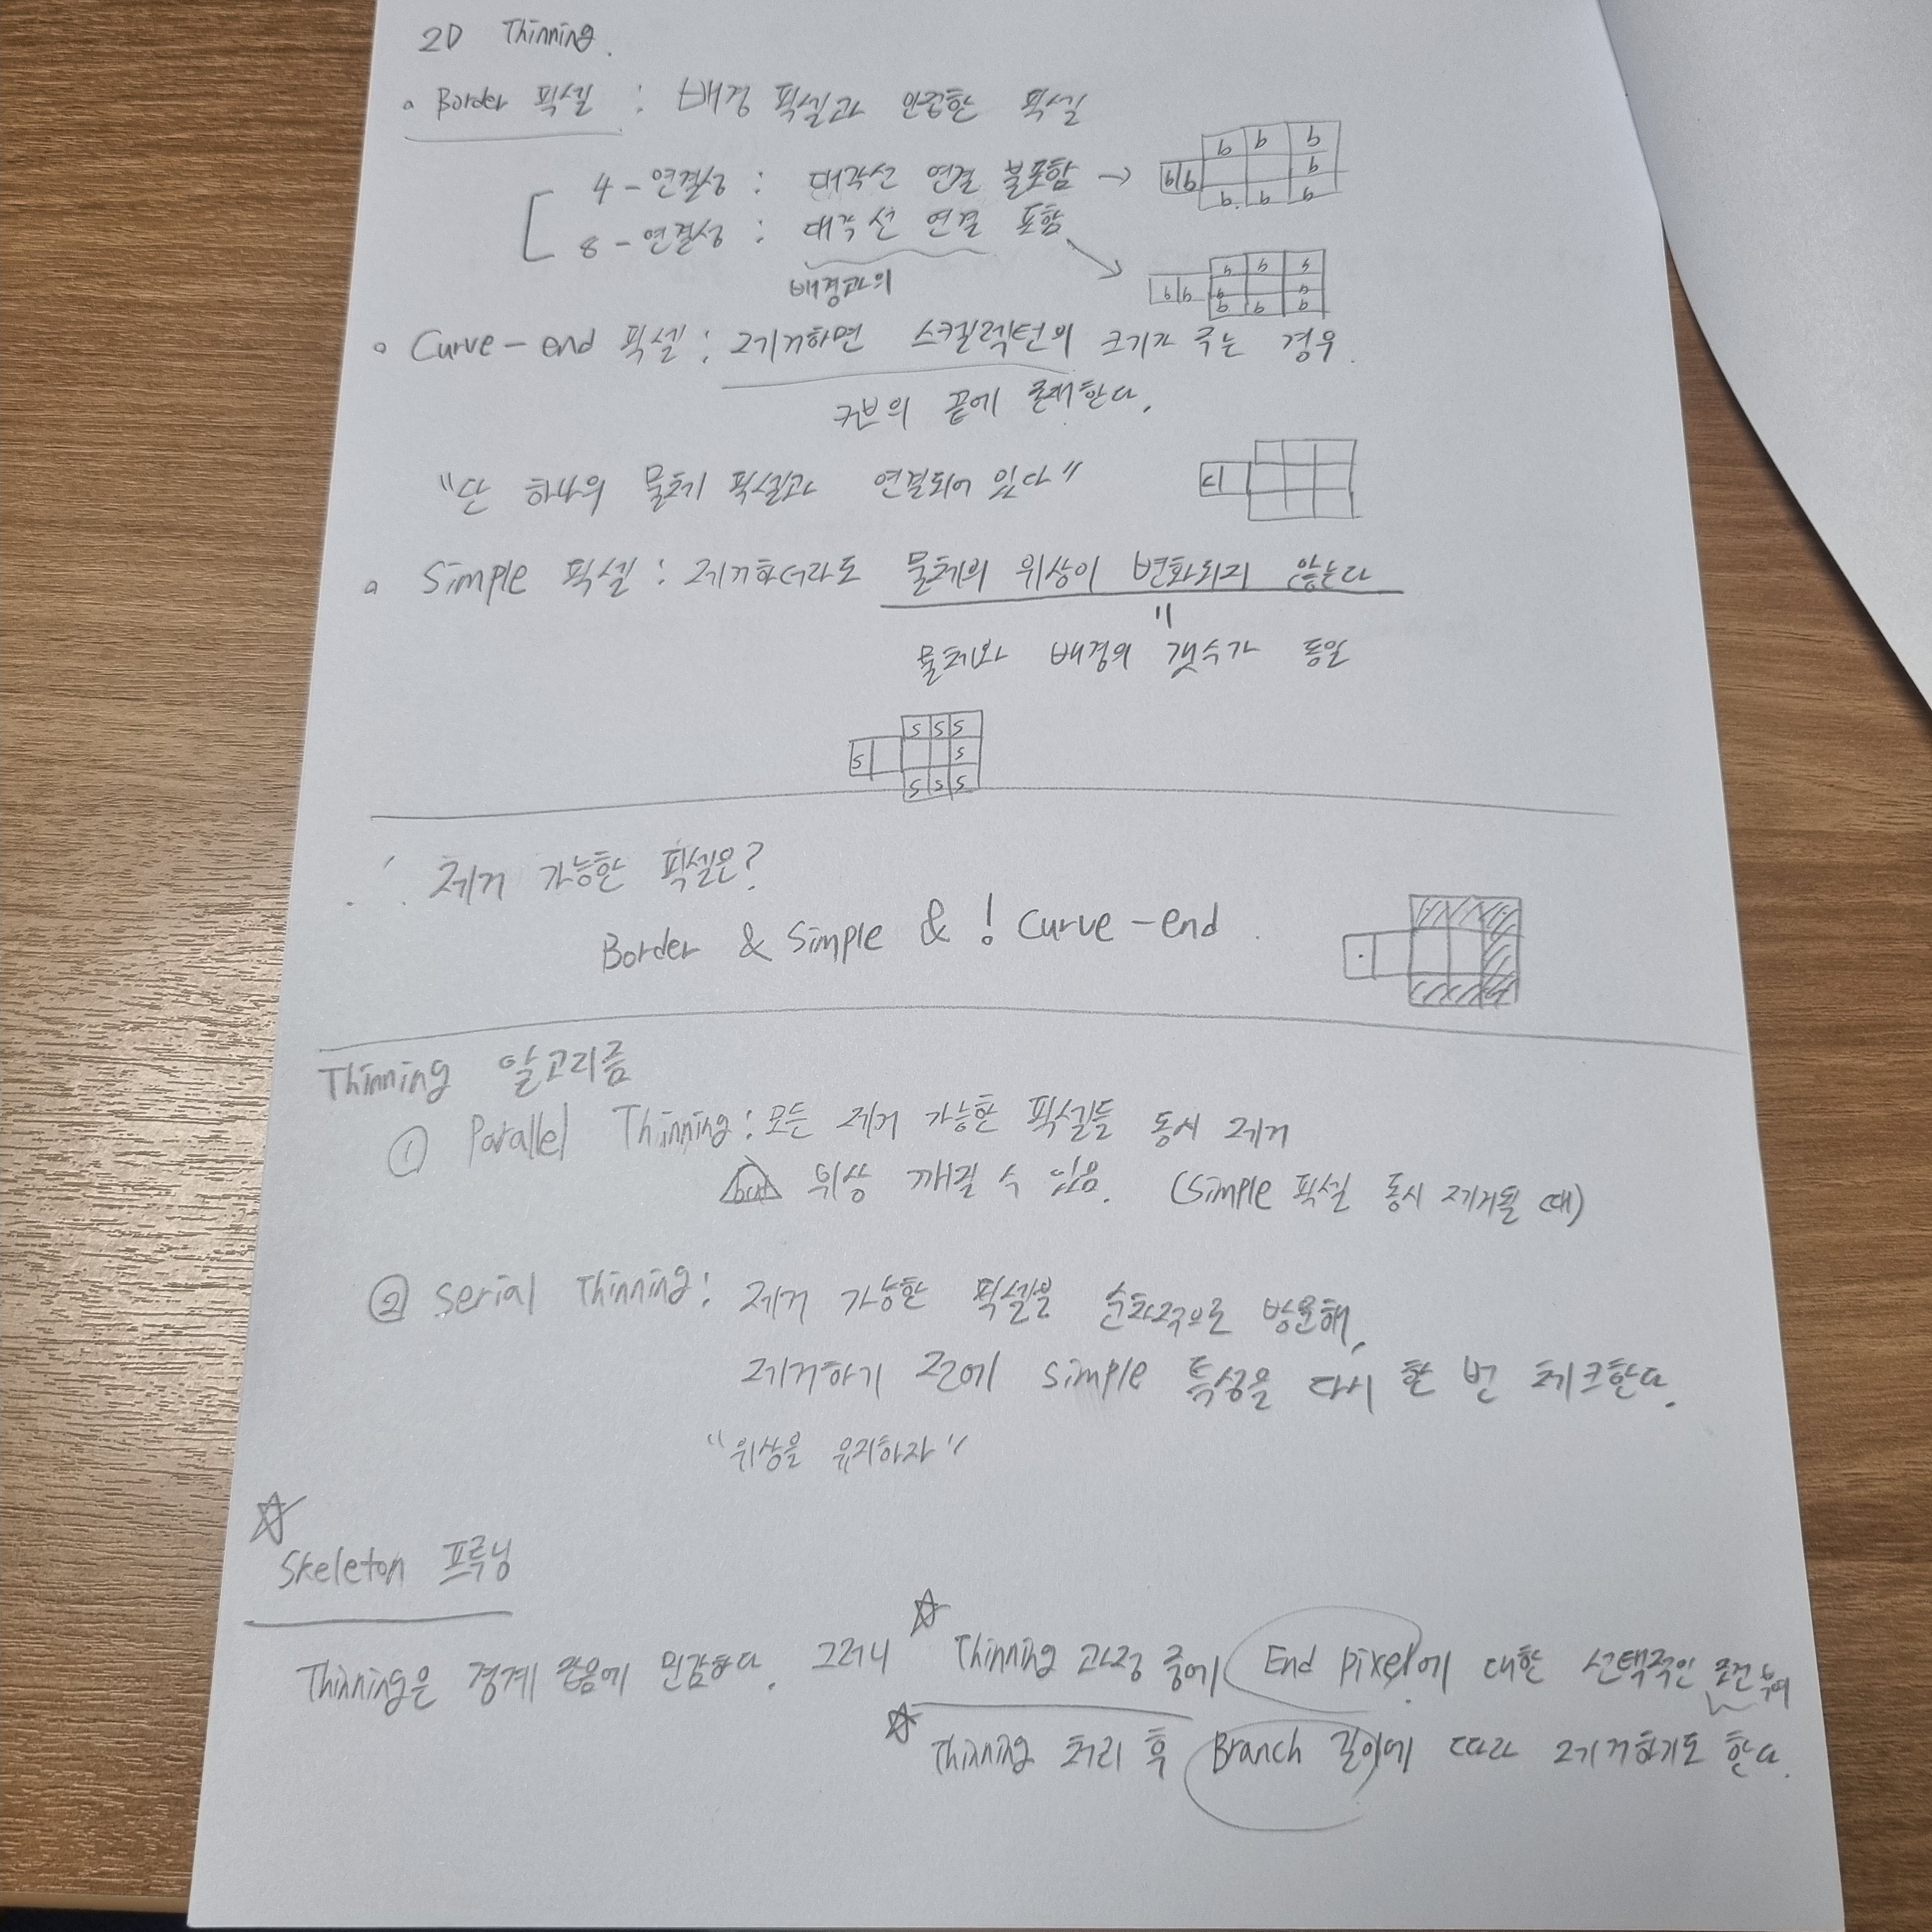 2D Thinning.
Border 픽셀 : 배경 픽셀과 인접한 픽셀
4-연결성 : 대각선 연결 불포함 →
b b b
b b b
b b b
8-연결성 : 대각선 연결 포함
배경과의
b b b
b b b b
b b b
Curve-end 픽셀 : 제거하면 스켈렉턴의 크기가 주는 경우.
커브의 끝에 존재한다.
"단 하나의 물체 픽셀과 연결되어 있다"
Simple 픽셀 : 제거하더라도 물체의 위상이 변화되지 않는다
"
물체와 배경의 갯수가 동일
S S S
S S
S S S
∴ 제거 가능한 픽셀은?
Border & Simple & ! Curve-end.
Thinning 알고리즘
① Parallel Thinning : 모든 제거 가능한 픽셀들 동시 제거
but 위상 깨질 수 있음. (Simple 픽셀 동시 제거될 때)
② Serial Thinning : 제거 가능한 픽셀을 순차적으로 방문해,
제거하기 전에 simple 특성을 다시 한 번 체크한다.
"위상을 유지하자"
☆
Skeleton 프루닝
Thinning은 경계 잡음에 민감하다. 그러니 ☆ Thinning 과정 중에 End pixel에 대한 선택적인 조건 부여
☆ Thinning 처리 후 Branch 길이에 따라 제거하기도 한다.